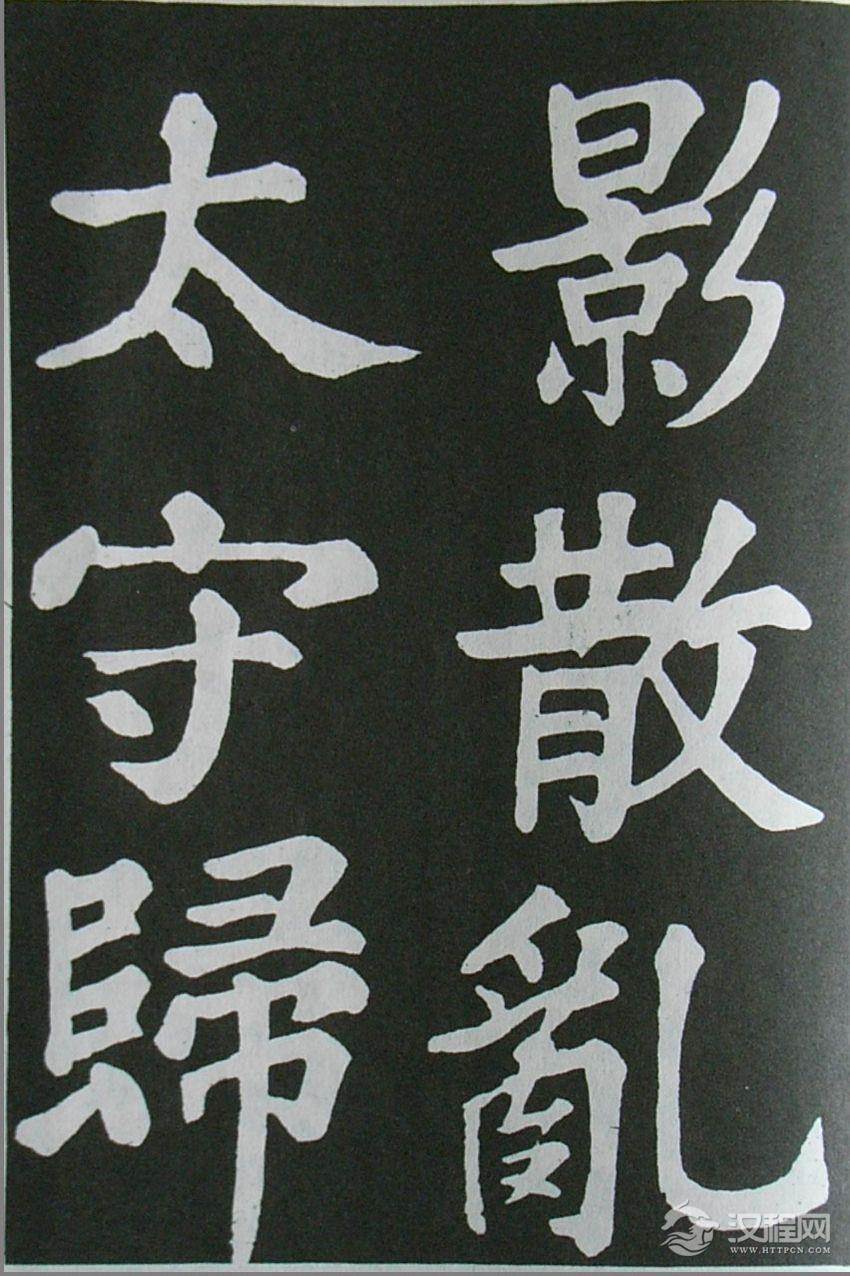 影散亂
太守歸
汉程网
WWW.HTTPCN.COM